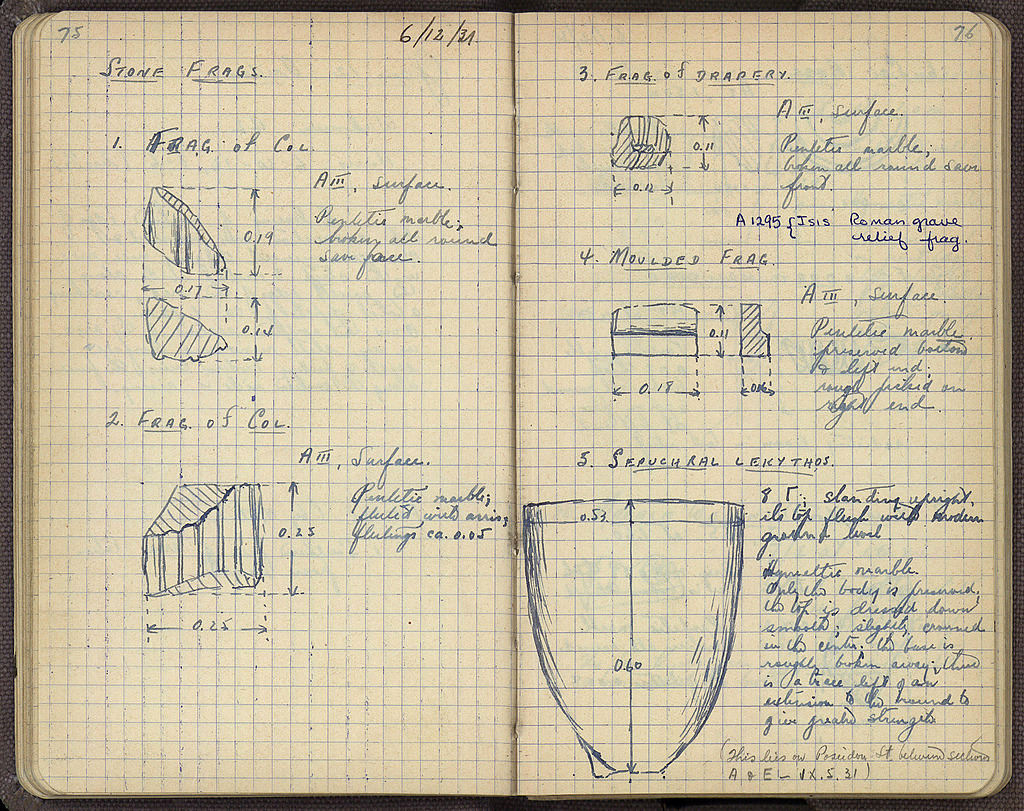 75
6/12/31
STONE FRAGS.
1. FRAG. of COL.
A III, surface.
Pentelic marble;
broken all round
save face.
0.19
0.17
0.14
2. FRAG. of COL.
A III, surface.
Pentelic marble;
fluted with arris;
flutings ca. 0.05
0.25
0.25
76
3. FRAG. of DRAPERY.
A III, surface.
Pentelic marble;
broken all round save
front.
0.11
0.12
A 1295 { Isis Roman grave
relief frag.
4. MOULDED FRAG.
A III, surface.
Pentelic marble
preserved bottom
& left end;
rough picked on
right end.
0.11
0.18
5. SEPUCHRAL LEKYTHOS.
standing upright,
its top flush with modern
ground level
Hymettic marble.
Only the body is preserved,
the top is dressed down
smooth; slightly crowned
in the center; the base is
roughly broken away; there
is a trace left of an
extension to the round to
give greater strength
0.53
0.60
(This lies on Poseidon St. between sections
A & E – IX.5.31)